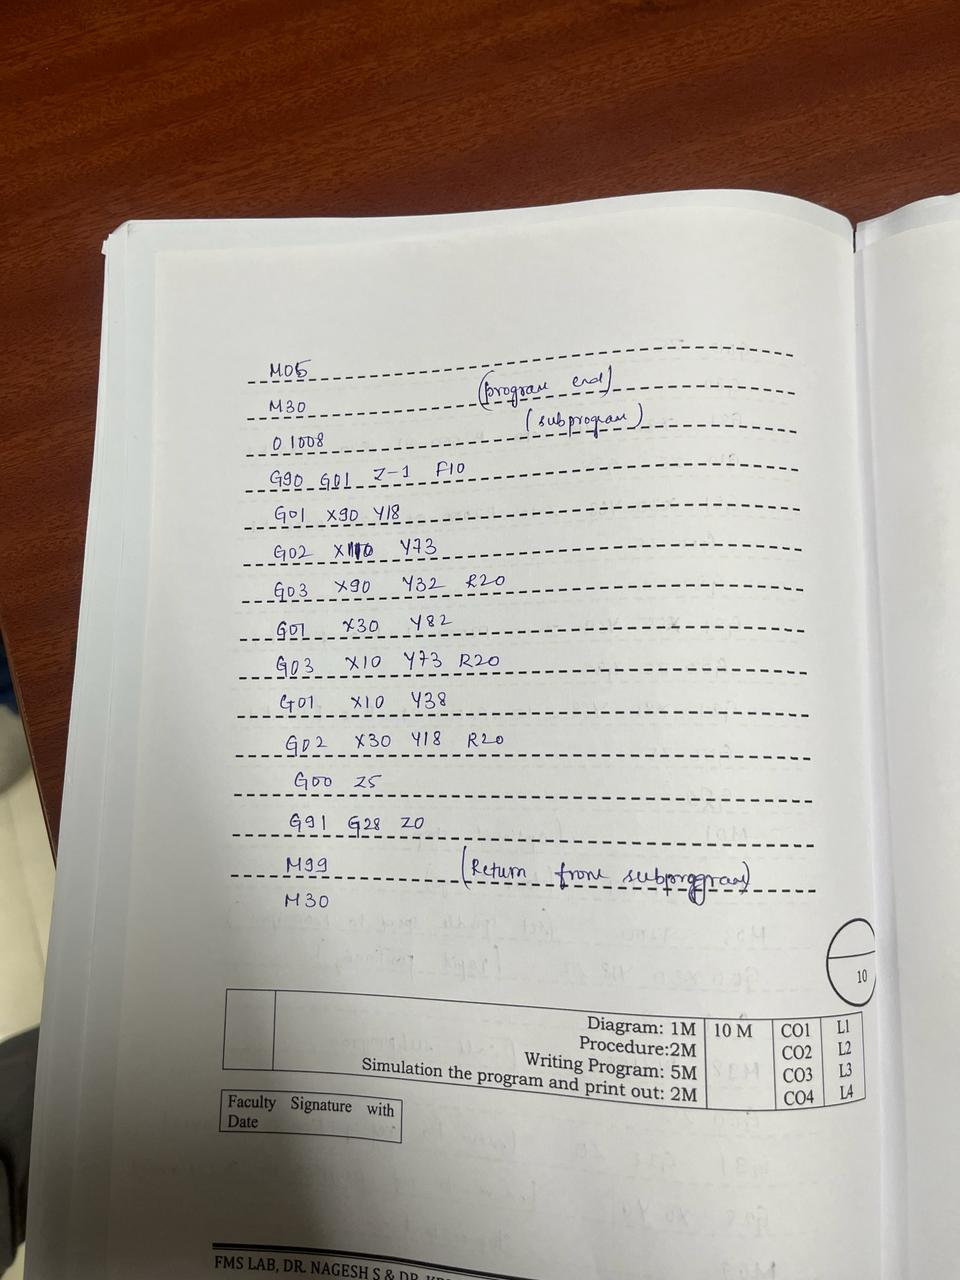 M05
M30 (program end)
O 1008 (subprogram)
G90 G01 Z-1 F10
G01 X90 Y18
G02 X110 Y73
G03 X90 Y32 R20
G01 X30 Y82
G03 X10 Y73 R20
G01 X10 Y38
G02 X30 Y18 R20
G00 Z5
G91 G28 Z0
M99 (Return from subprogram)
M30
10
Diagram: 1M 10 M CO1 L1
Procedure:2M CO2 L2
Writing Program: 5M CO3 L3
Simulation the program and print out: 2M CO4 L4
Faculty Signature with
Date
FMS LAB, DR. NAGESH S & DR.